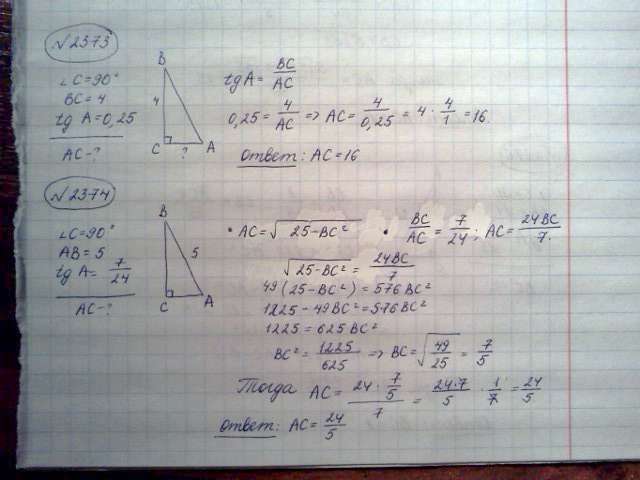 №2373
∠C=90°
BC=4
tg A=0,25
AC-?
B
4
C
?
A
tgA= BC/AC
0,25= 4/AC => AC= 4/0,25 = 4 · 4/1 =16.
Ответ: AC=16
№2374
∠C=90°
AB=5
tg A= 7/24
AC-?
B
5
C
A
• AC=√25-BC² • BC/AC = 7/24; AC= 24BC/7.
√25-BC² = 24BC/7
49(25-BC²)=576BC²
1225-49BC²=576BC²
1225=625BC²
BC²= 1225/625 => BC=√49/25 = 7/5
Тогда AC= 24·7/5/7 = 24·7/5 · 1/7 = 24/5
Ответ: AC= 24/5